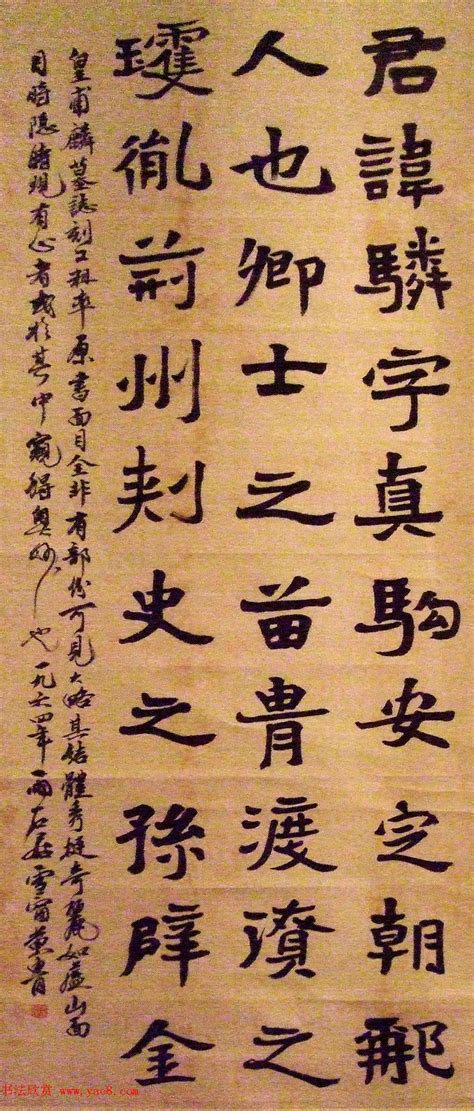 君諱驎字真駒安定朝郍
人也卿士之苗胄渡之
瓊胤荊州刾史之孫辟金
皇甫麟墓誌刻工粗率原書面目全非有部份可見大略其結體秀挺奇麗如廬山面
目時隱時現有心者或於其中窺得奧妙也一九六四年雨石於雪窗
书法欣赏 www.yac8.com